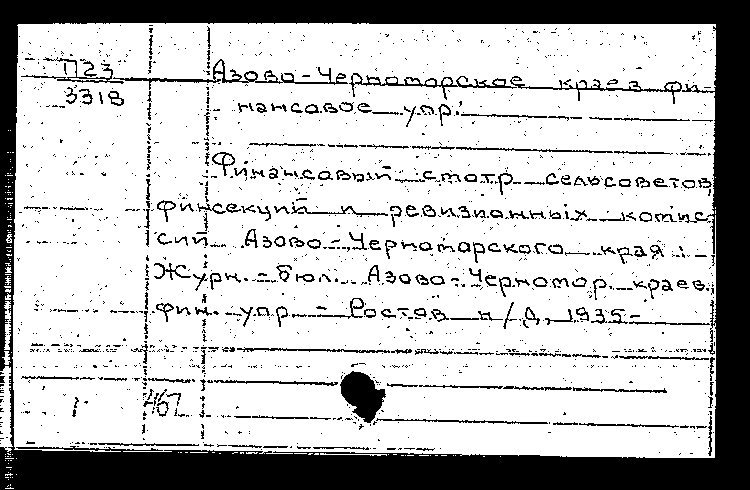 П23
3318
Азово-Черноморское краев. фи-
нансовое упр.
Финансовый смотр сельсоветов,
финсекций и ревизионных комис-
сий Азово-Черноморского края : -
Журн.-бюл. Азово-Черномор. краев.
фин. упр. - Ростов н/Д, 1935-
1 467